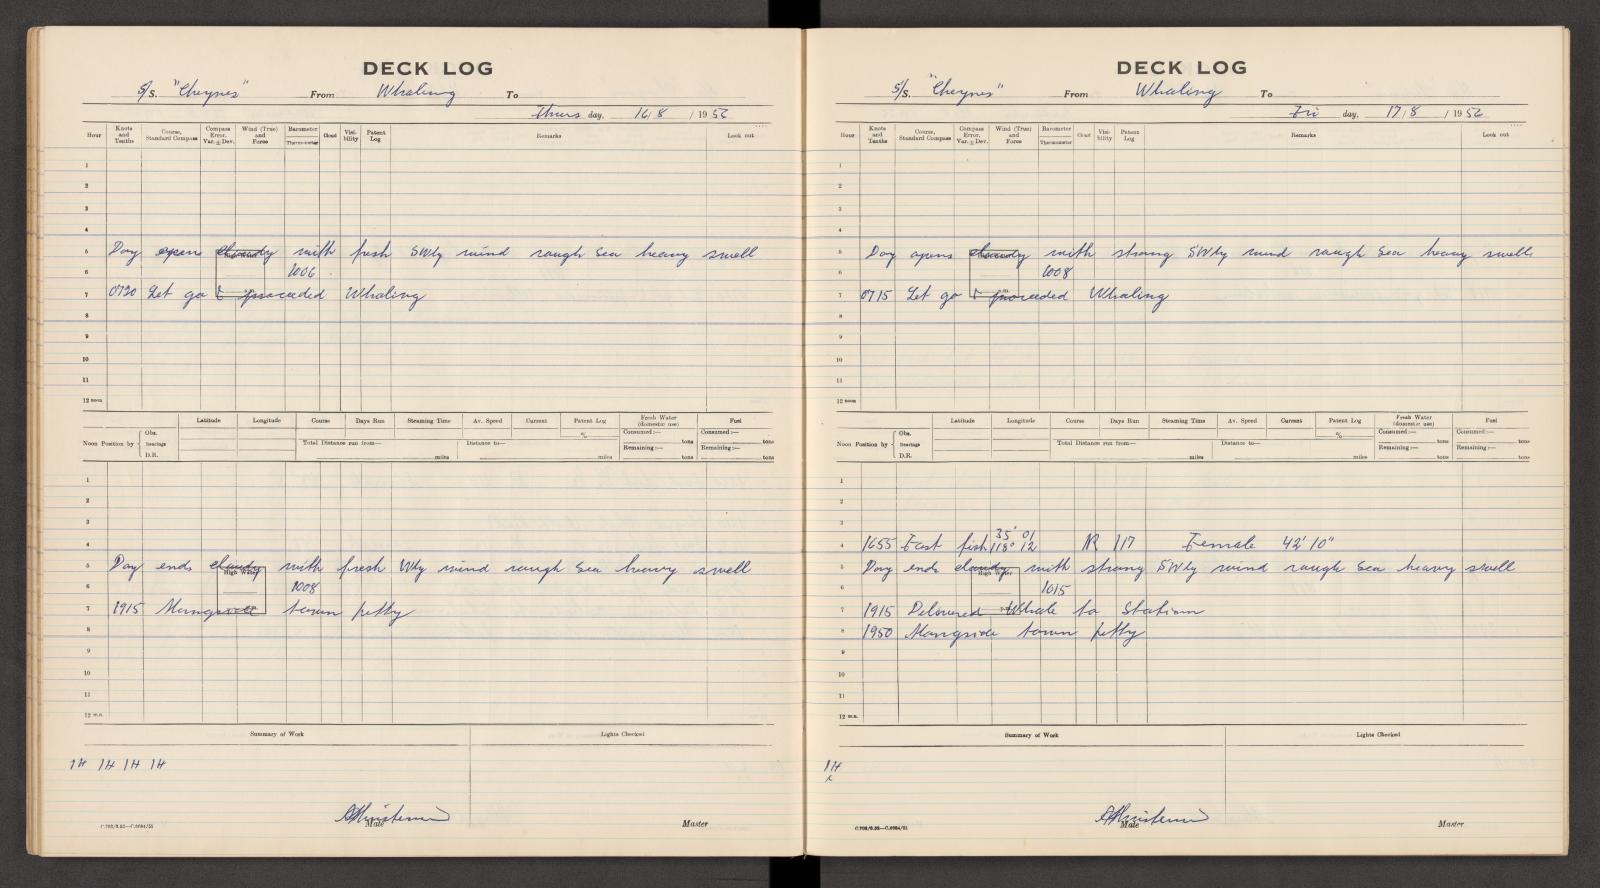 DECK LOG
S/S. "Cheynes" From Whaling To
Thurs day, 16/8 / 1956
Hour
Knots and Tenths
Course, Standard Compass
Compass Error. Var. ± Dev.
Wind (True) and Force
Barometer
Thermometer
Cloud
Visibility
Patent Log
Remarks
Look out
1
2
3
4
5 Day opens cloudy with fresh SWly wind rough sea heavy swell
6 1006
7 0720 Let go & proceeded Whaling
8
9
10
11
12 noon
Latitude Longitude Course Days Run Steaming Time Av. Speed Current Patent Log Fresh Water (domestic use) Fuel
%
Noon Position by
Obs.
Bearings
D.R.
Total Distance run from—
miles
Distance to—
miles
Consumed:— tons
Remaining:— tons
Consumed:— tons
Remaining:— tons
1
2
3
4
5 Day ends cloudy with fresh Wly wind rough sea heavy swell
High Water
6 1008
7 1915 Alongside town jetty
8
9
10
11
12 m.n.
Summary of Work
Lights Checked
1H 1H 1H 1H
Mate
Master
C.702/3.52—C.6984/51
DECK LOG
S/S. "Cheynes" From Whaling To
Fri day, 17/8 / 1956
Hour
Knots and Tenths
Course, Standard Compass
Compass Error. Var. ± Dev.
Wind (True) and Force
Barometer
Thermometer
Cloud
Visibility
Patent Log
Remarks
Look out
1
2
3
4
5 Day opens cloudy with strong SWly wind rough sea heavy swell
6 1008
7 0715 Let go & proceeded Whaling
8
9
10
11
12 noon
Latitude Longitude Course Days Run Steaming Time Av. Speed Current Patent Log Fresh Water (domestic use) Fuel
%
Noon Position by
Obs.
Bearings
D.R.
Total Distance run from—
miles
Distance to—
miles
Consumed:— tons
Remaining:— tons
Consumed:— tons
Remaining:— tons
1
2
3
35° 01
4 1655 Fast fish 118° 12 NR 117 Female 42' 10"
5 Day ends cloudy with strong SWly wind rough sea heavy swell
High Water
6 1015
7 1915 Delivered Whale to Station
8 1950 Alongside town jetty
9
10
11
12 m.n.
Summary of Work
Lights Checked
1H
Mate
Master
C.702/3.52—C.6984/51